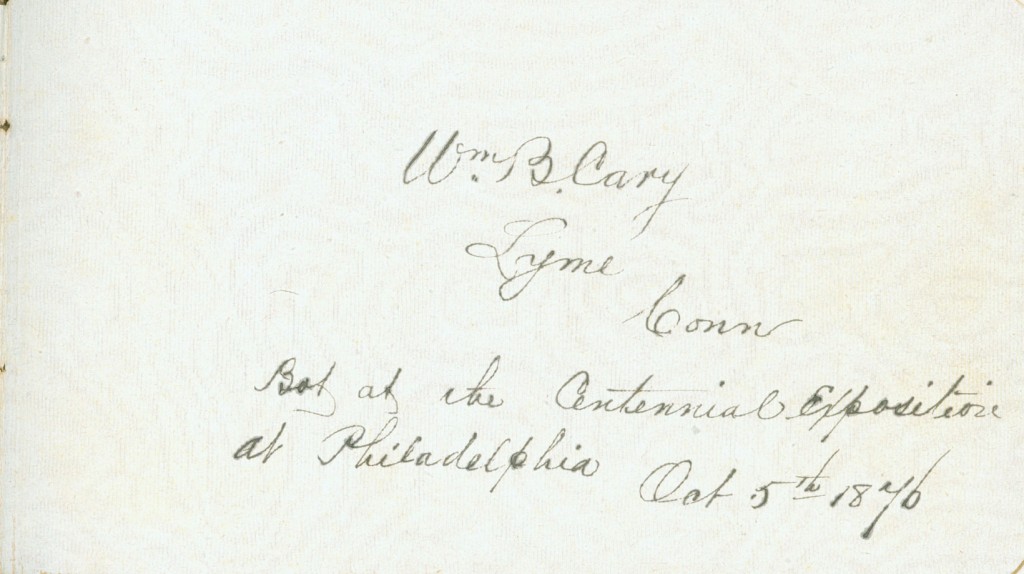 Wm. B. Cary
Lyme
Conn
Bot at the Centennial Exposition
at Philadelphia
Oct 5th 1876